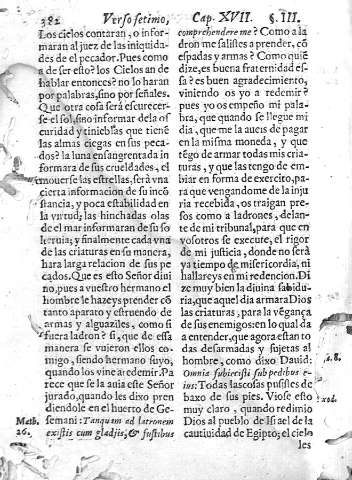 382 Verso setimo, Cap. XVII. §. III.
Los cielos contaran, o infor-
maran al juez de las iniquida-
des de el pecador. Pues como
a de ser esto? los Cielos an de
hablar entonces? no an de hablar
por palabras, sino por señales.
Que otra cosa será escurecer-
se el sol, sino informar de la os
curidad y tinieblas que tiene
las almas ciegas en sus peca-
dos? la luna ensangrentada in
formara de sus crueldades, el
mouerse las estrellas, será vna
cierta informacion de su incō
stancia, y poca estabilidad en
la virtud; las hinchadas olas
de el mar informaran de su so
beruia; y finalmente cada vna
de las criaturas en su manera,
hara larga relacion de sus pe
cados. Que es esto Señor diui
no, pues a vuestro hermano el
hombre le hazeys prender cō
tanto aparato y estruendo de
armas y alguaziles, como si
fuera ladron? si, que de essa
manera se vuieron ellos co-
migo, siendo hermano suyo,
quando los vine a redemir. Pa
rece que se la auia este Señor
jurado, quando les dixo pren
diendole en el huerto de Ge-
semani: Tanquam ad latronem
existis cum gladijs, & fustibus
Math.
26.
comprehendere me? Como a la
dron me salistes a prender, cō
espadas y armas? Como quiē
dize, es buena fraternidad es-
sa? es buen agradecimiento,
viniendo os yo a redemir?
pues yo os empeño mi pala-
bra, que quando se llegue mi
dia, que me la aueis de pagar
en la misma moneda, y que
tēgo de armar todas mis cria-
turas, y que las tengo de em-
biar en forma de exercito, pa-
ra que vengandome de la inju
ria recebida, os traigan pre-
sos como a ladrones, delan-
te de mi tribunal, para que en
vosotros se execute, el rigor
de mi justicia, donde no será
ya tiempo de misericordia, ni
hallareys en mi redencion. Di
ze muy bien la diuina sabidu-
ria, que aquel dia armara Dios
las criaturas, para la vēgança
de sus enemigos: en lo qual da
a entender, que agora estan to
das desarmadas y sujetas al
hombre, como dixo Dauid:
Omnia subiecisti sub pedibus e-
ius: Todas las cosas pusistes de
baxo de sus pies. Viose esto
muy claro, quando redimio
Dios al pueblo de Israel de la
cautiuidad de Egipto; el cielo
les